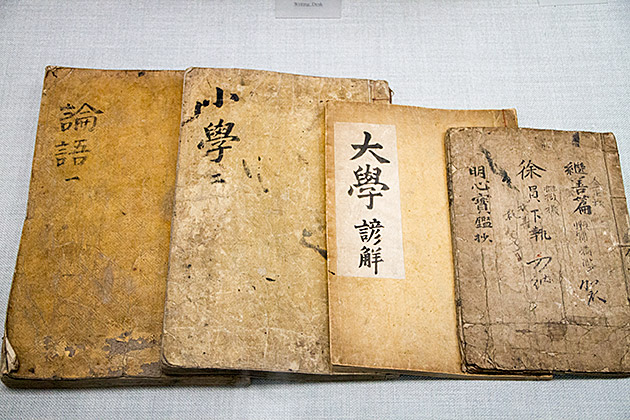 Writing Desk
論語 一
小學 二
大學
諺解
明心寶鑑抄
徐員下執
繼善篇